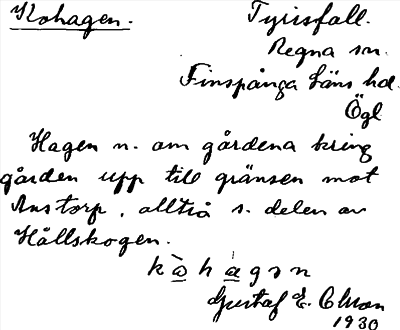 Kohagen. Tyrisfall.
Regna sn.
Finspånga läns hd.
Ögl
Hagen n. om gårdena kring
gården upp till gränsen mot
Anstorp, alltså s. delen av
Hällskogen.
kòhàgən
Gustaf E. Olson
1930